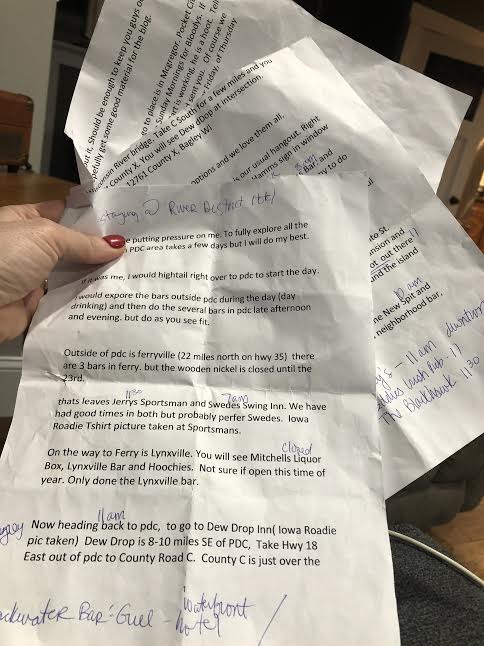 out it. Should be enough to keep you guys o
opefully get some good material for the blog.
go to place is in Mcgregor, Pocket Ci
Sunday Mornings for Bloodys. If
rt is working, he is a hoot. Tell
I sent you. Of course we
– Friday, of Thursday.
isconsin River bridge. Take C South for a few miles and you
County X. You will see Dew dDop at intersection.
12761 County X, Bagley WI
options and we love them all.
is our usual hangout. Right
Hamms sign in window
Bar, and
ny to do
nto St.
ansion and
ot out there
und the Island
17
10 am
he New Spit and
neighborhood bar.
11 am downtown
17
The Blackhawk 11 30
Staying @ River District (tk)
e putting pressure on me. To fully explore all the
PDC area takes a few days but I will do my best.
If it was me, I would hightail right over to pdc to start the day.
I would expore the bars outside pdc during the day (day
drinking) and then do the several bars in pdc late afternoon
and evening. but do as you see fit.
Outside of pdc is ferryville (22 miles north on hwy 35) there
are 3 bars in ferry. but the wooden nickel is closed until the
23rd.
11 30
7am
thats leaves Jerrys Sportsman and Swedes Swing Inn. We have
had good times in both but probably perfer Swedes. Iowa
Roadie Tshirt picture taken at Sportsmans.
closed
On the way to Ferry is Lynxville. You will see Mitchells Liquor
Box, Lynxville Bar and Hoochies. Not sure if open this time of
year. Only done the Lynxville bar.
11am
Now heading back to pdc, to go to Dew Drop Inn( Iowa Roadie
pic taken) Dew Drop is 8-10 miles SE of PDC, Take Hwy 18
East out of pdc to County Road C. County C is just over the
ackwater Bar & Guel - waterfront
hotel